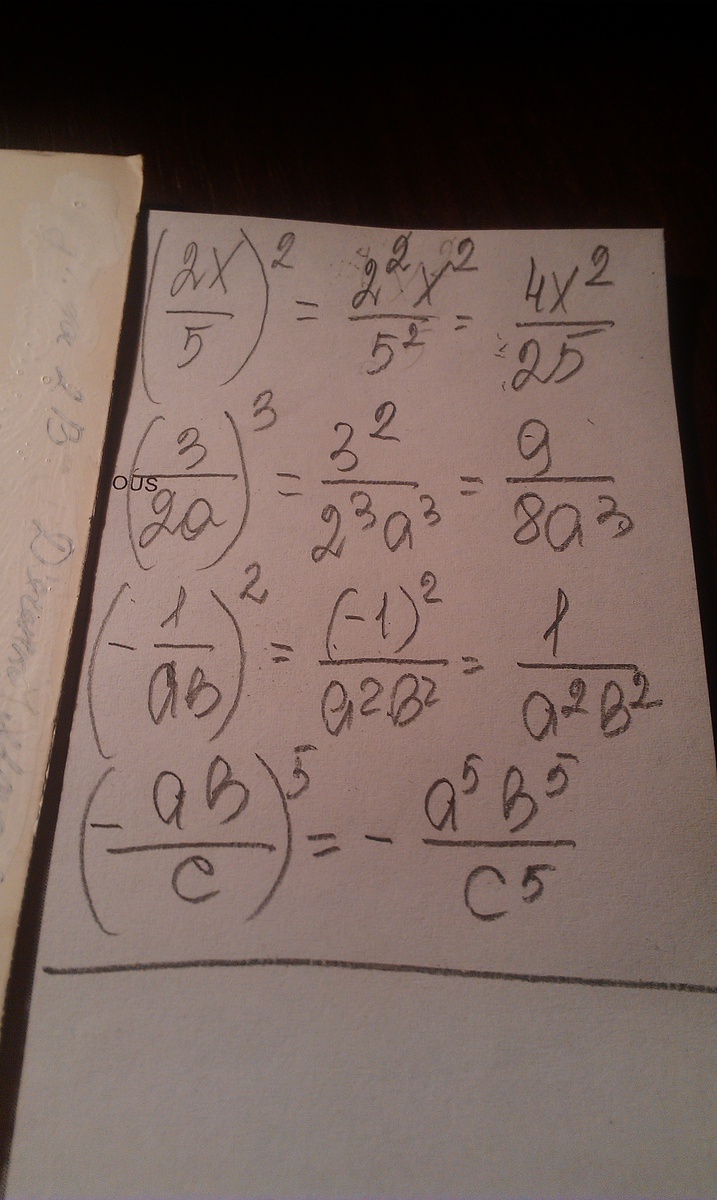 (2x/5)² = 2²x²/5² = 4x²/25
(3/2a)³ = 3²/2³a³ = 9/8a³
ous
(-1/aв)² = (-1)²/a²в² = 1/a²в²
(-aв/c)⁵ = -a⁵в⁵/c⁵